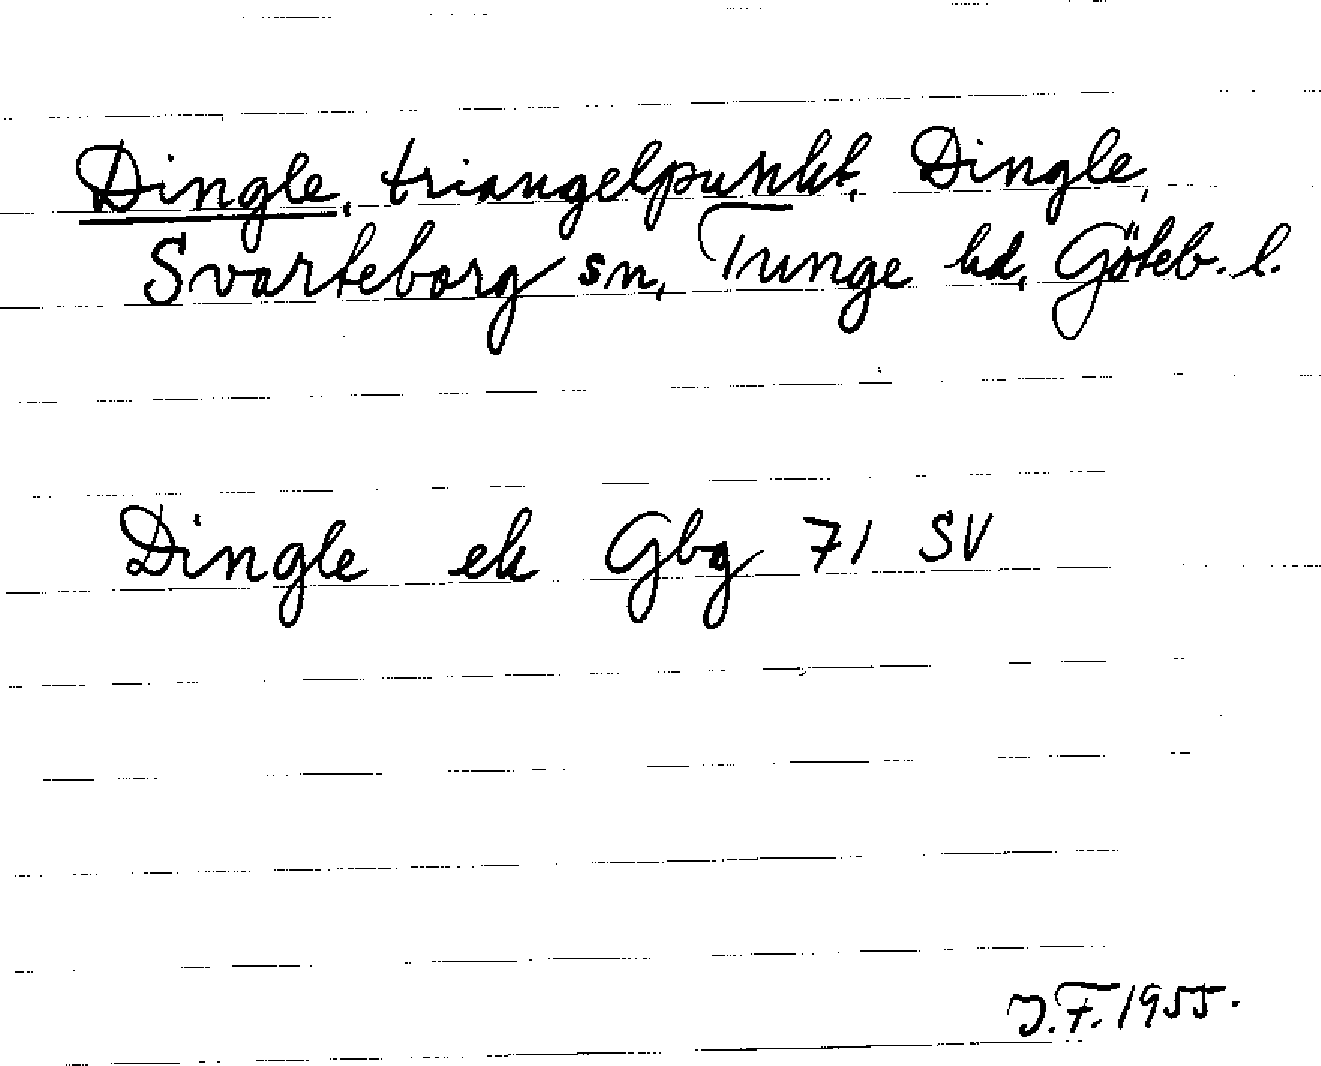 Dingle, triangelpunkt, Dingle,
Svarteborg sn, Tunge hd, Göteb. l.
Dingle ek Gbg 71 SV
J.F. 1955.